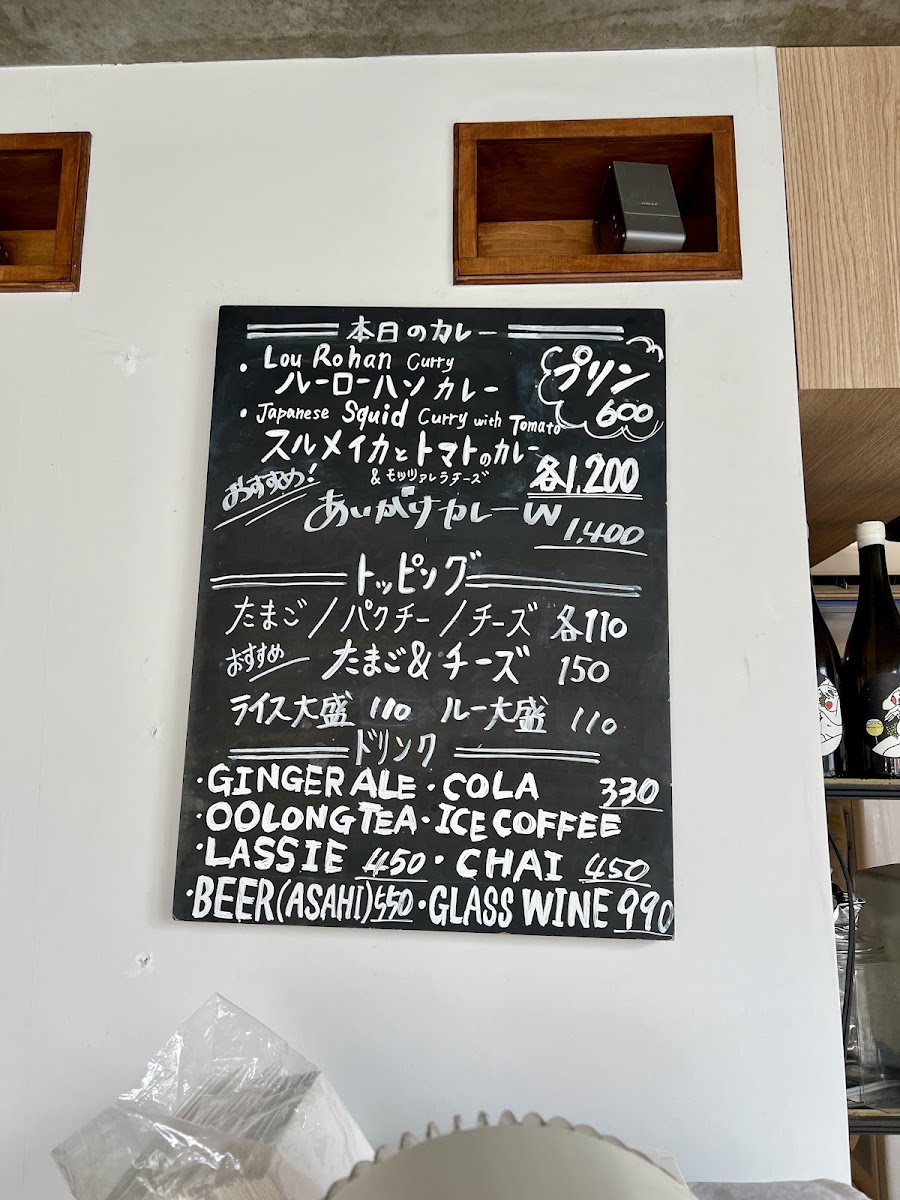 BOSE
本日のカレー
・Lou Rohan Curry
ルーローハンカレー
プリン
600
・Japanese Squid Curry with Tomato
スルメイカとトマトのカレー
& モッツァレラチーズ
各1,200
おすすめ!
あいがけカレーW
1,400
トッピング
たまご/パクチー/チーズ 各110
おすすめ たまご&チーズ 150
ライス大盛 110 ルー大盛 110
ドリンク
・GINGER ALE・COLA 330
・OOLONG TEA・ICE COFFEE
・LASSIE 450・CHAI 450
・BEER(ASAHI)550・GLASS WINE 990